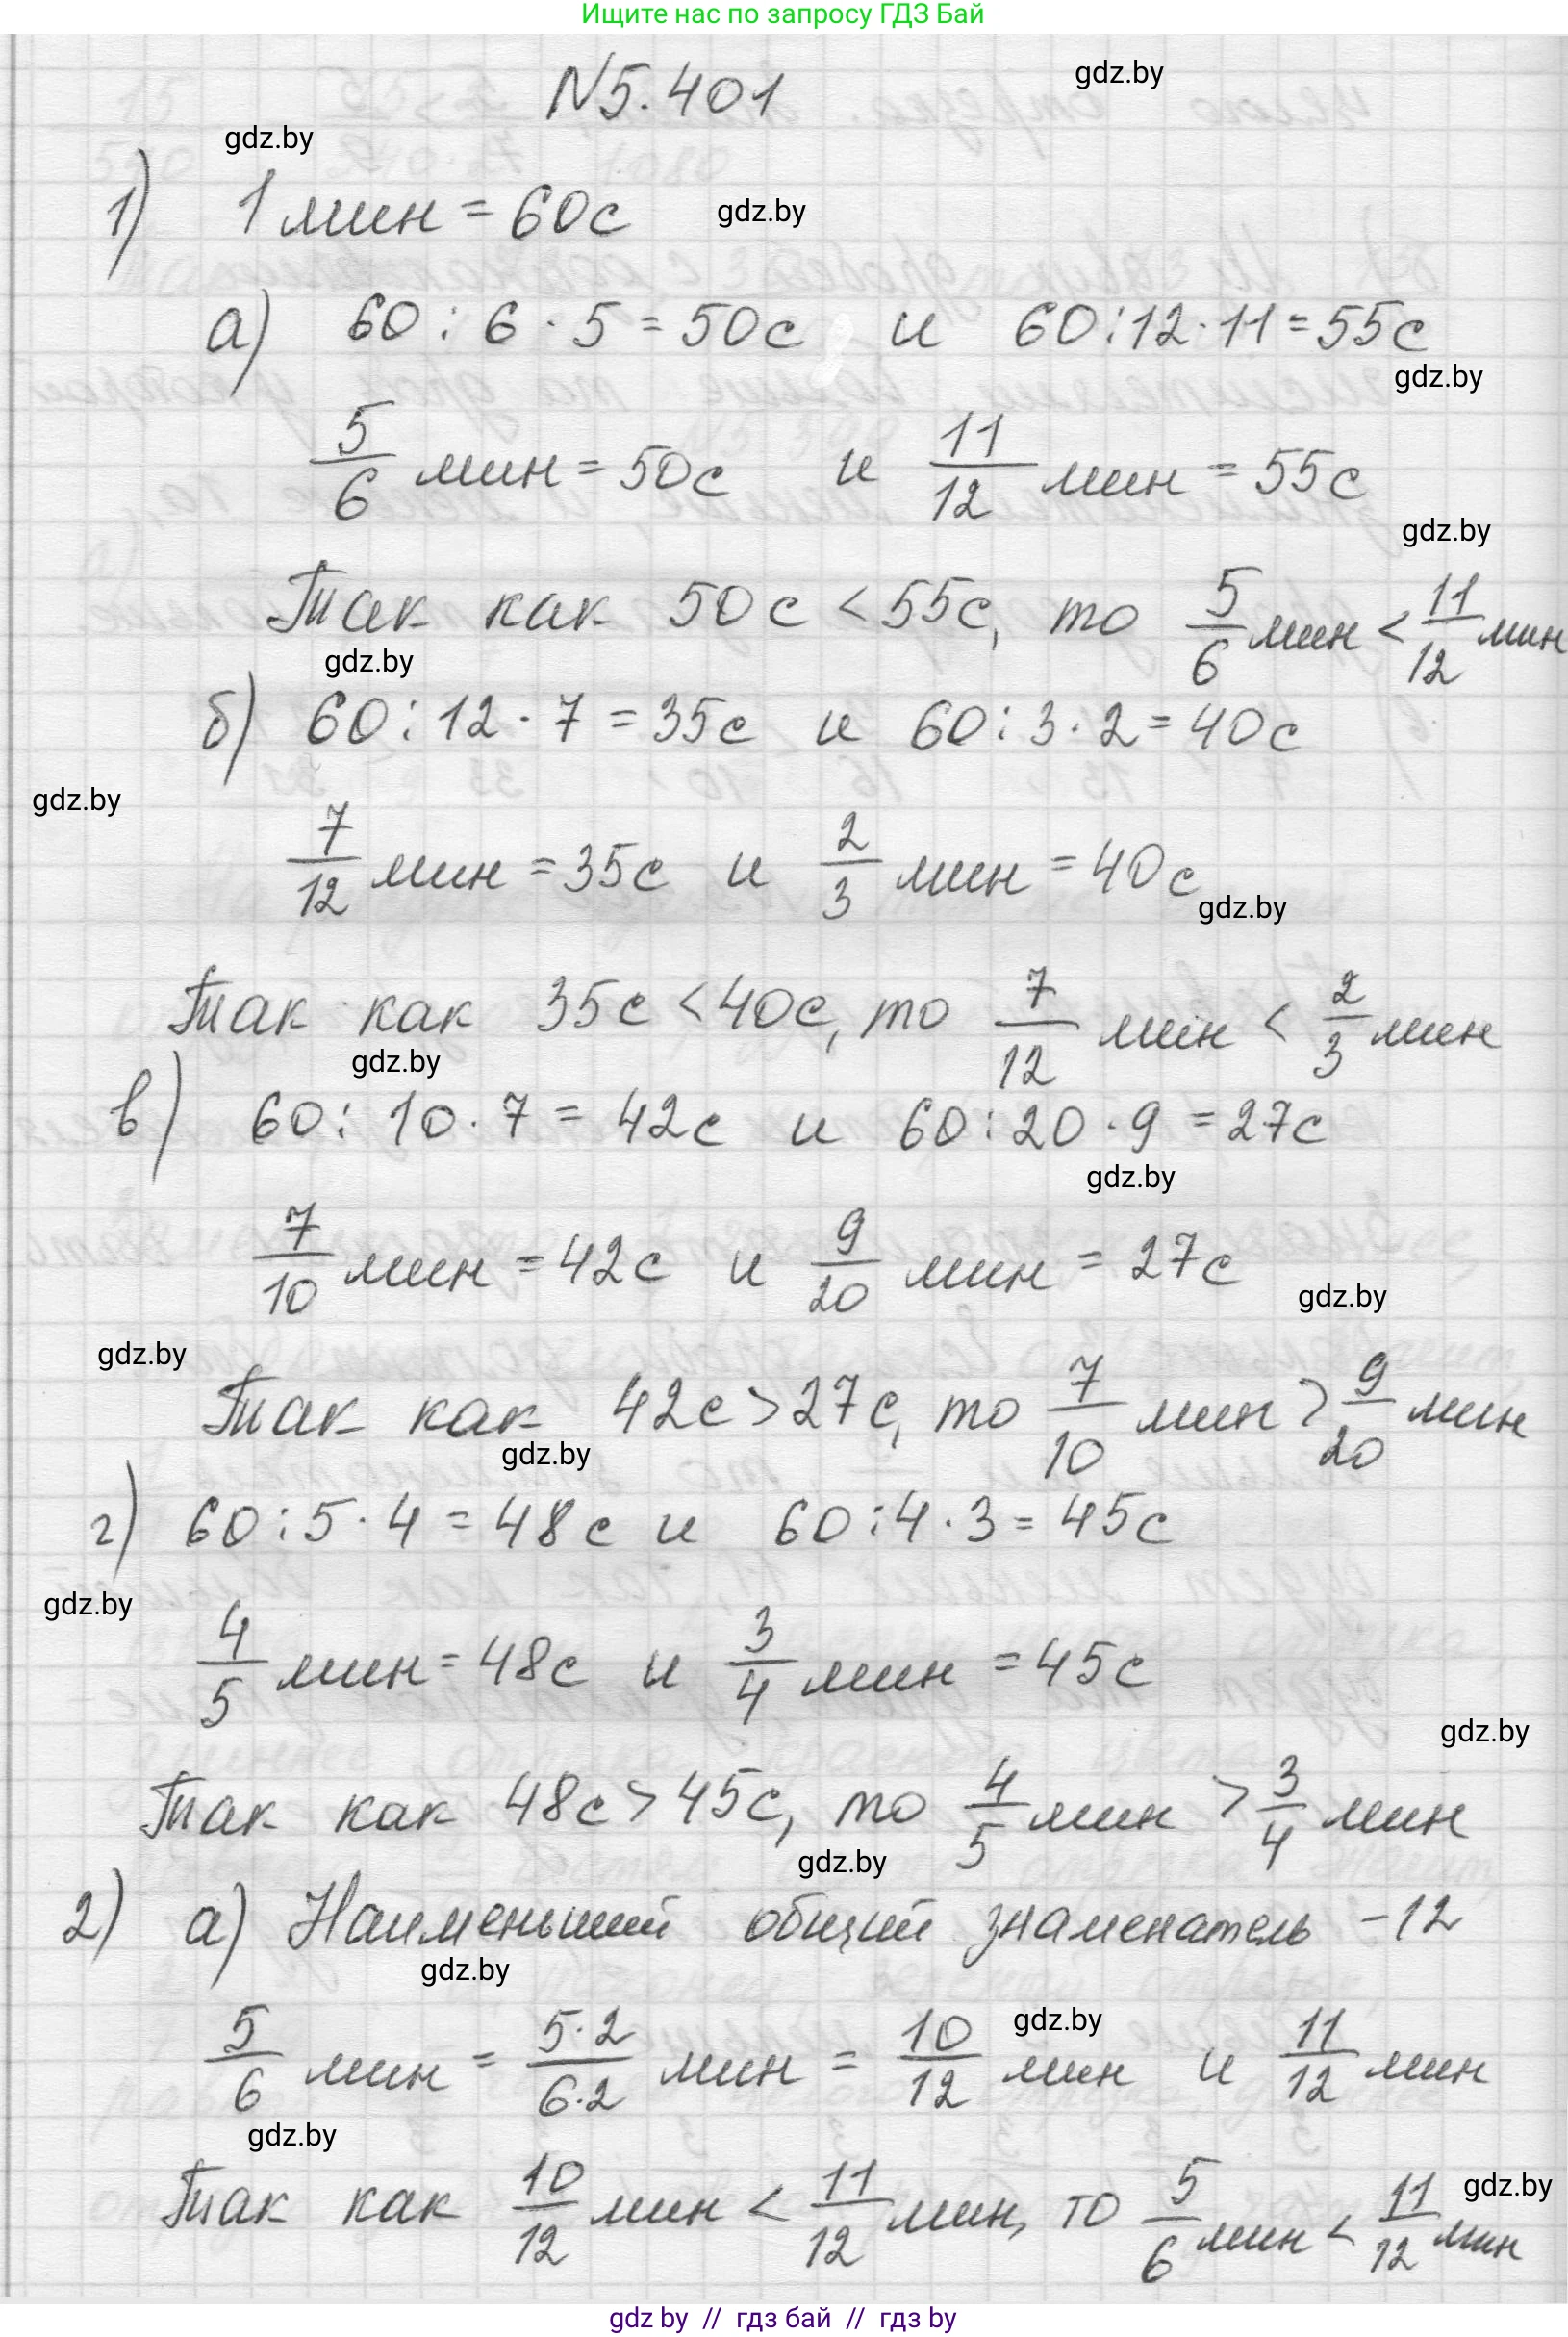 Ищите нас по запросу ГДЗ Бай
N5.401
gdz.by
gdz.by
1) 1 мин = 60с
gdz.by
а) 60 : 6 · 5 = 50с и 60 : 12 · 11 = 55с
gdz.by
5/6 мин = 50с и 11/12 мин = 55с
gdz.by
Так как 50с < 55с, то 5/6 мин < 11/12 мин
gdz.by
б) 60 : 12 · 7 = 35с и 60 : 3 · 2 = 40с
gdz.by
7/12 мин = 35с и 2/3 мин = 40с
gdz.by
Так как 35с < 40с, то 7/12 мин < 2/3 мин
gdz.by
в) 60 : 10 · 7 = 42с и 60 : 20 · 9 = 27с
gdz.by
7/10 мин = 42с и 9/20 мин = 27с
gdz.by
gdz.by
Так как 42с > 27с, то 7/10 мин > 9/20 мин
gdz.by
г) 60 : 5 · 4 = 48с и 60 : 4 · 3 = 45с
gdz.by
4/5 мин = 48с и 3/4 мин = 45с
gdz.by
Так как 48с > 45с, то 4/5 мин > 3/4 мин
gdz.by
2) а) Наименьший общий знаменатель - 12
gdz.by
gdz.by
5/6 мин = 5·2/6·2 мин = 10/12 мин и 11/12 мин
gdz.by
Так как 10/12 мин < 11/12 мин, то 5/6 мин < 11/12 мин
gdz.by
gdz by // гдз бай // гдз by